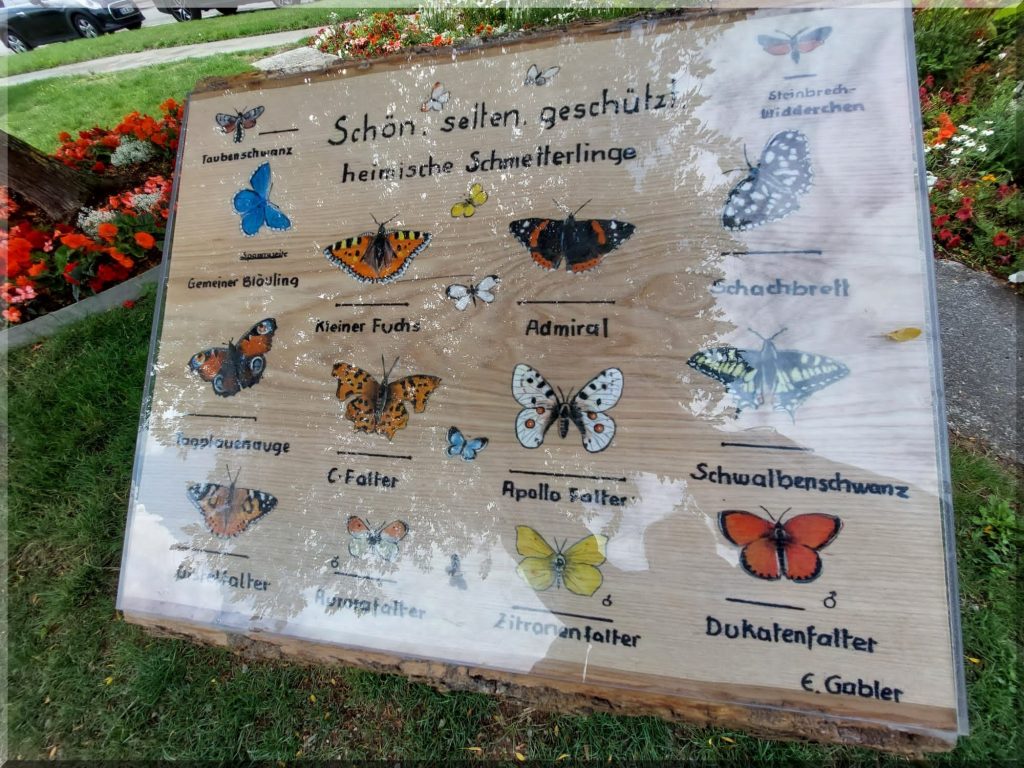 Schön, selten, geschützt
heimische Schmetterlinge
Taubenschwanz
Steinbrech-
Widderchen
Spannweite
Gemeiner Bläuling
Kleiner Fuchs
Admiral
Schachbrett
Tagpfauenauge
C-Falter
Apollo Falter
Schwalbenschwanz
Distelfalter
♂
Aurorafalter
♂
Zitronenfalter
♂
Dukatenfalter
E. Gabler